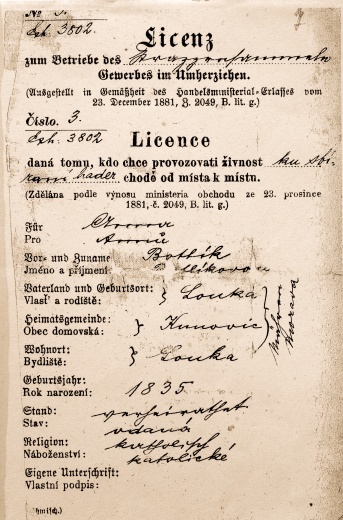 No 3.
Exh. 3802.
Licenz
zum Betriebe des Strazzensammeln
Gewerbes im Umherziehen.
(Ausgestellt in Gemäßheit des Handelsministerial-Erlasses vom
23. December 1881, Z. 2049, B. lit. g.)
Číslo. 3.
Exh. 3802
Licence
daná tomu, kdo chce provozovati živnost ku sbí-
raní hader chodě od místa k místu.
(Zdělána podle výnosu ministeria obchodu ze 23. prosince
1881, č. 2049, B. lit. g.)
Für Anna
Pro Annu
Vor- und Zuname Botlík
Jméno a příjmení
Vaterland und Geburtsort:
Vlasť a rodiště: } Louka
Heimatsgemeinde:
Obec domovská: } Kunovic
Mähren
Morava
Wohnort:
Bydliště: } Louka
Geburtsjahr:
Rok narození: 1835
Stand: verheirathet
Stav: vdaná
Religion: katholisch
Náboženství: katolické
Eigene Unterschrift:
Vlastní podpis: